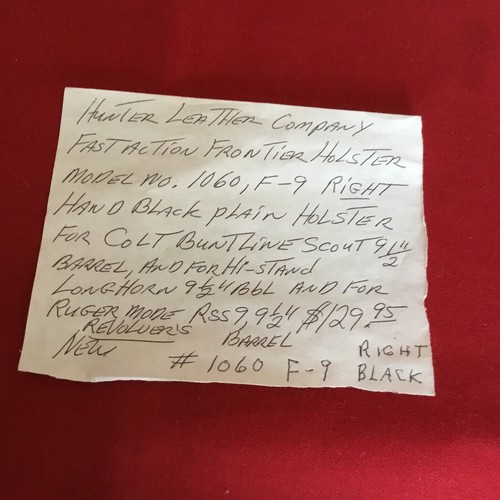 HUNTER LEATHER COMPANY
FAST ACTION FRONTIER HOLSTER
MODEL NO. 1060, F-9 RIGHT
HAND BLACK PLAIN HOLSTER
FOR COLT BUNTLINE SCOUT 9 1/2"
BARREL, AND FOR HI-STAND
LONGHORN 9 1/2" BbL AND FOR
RUGER MODE RSS9, 9 1/2" $129.95
REVOLVER'S BARREL
NEW # 1060 F-9 RIGHT
BLACK